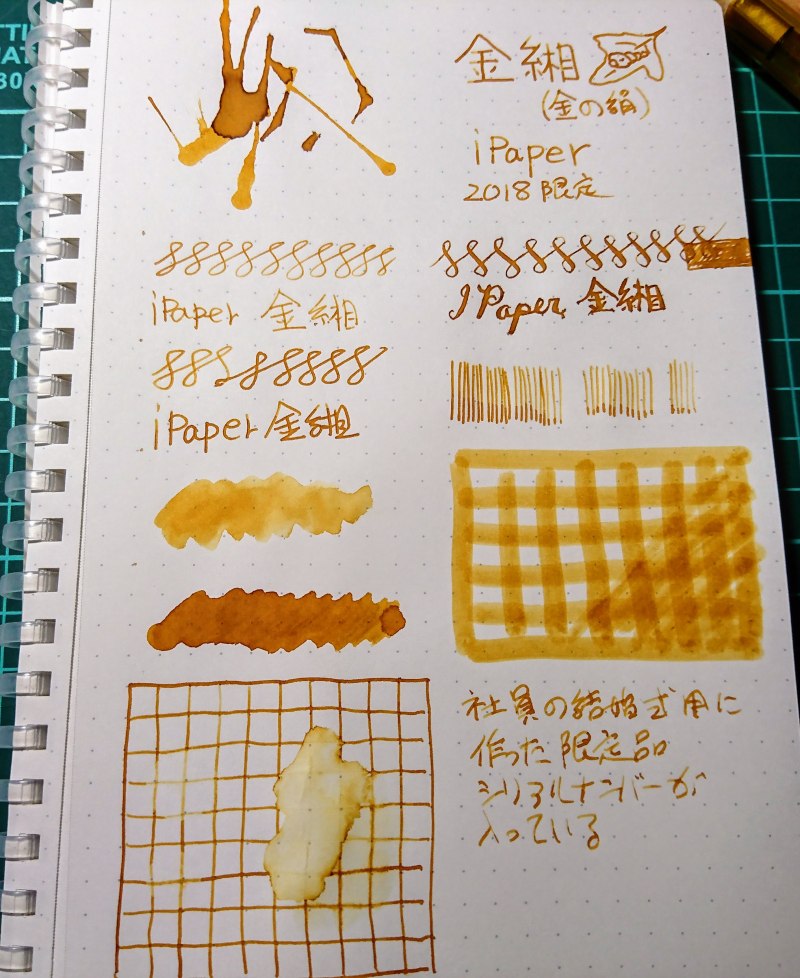 金緗
(金の絹)
iPaper
2018限定
iPaper 金緗
iPaper 金緗
iPaper 金緗
社員の結婚式用に
作った限定品
シリアルナンバーが
入っている